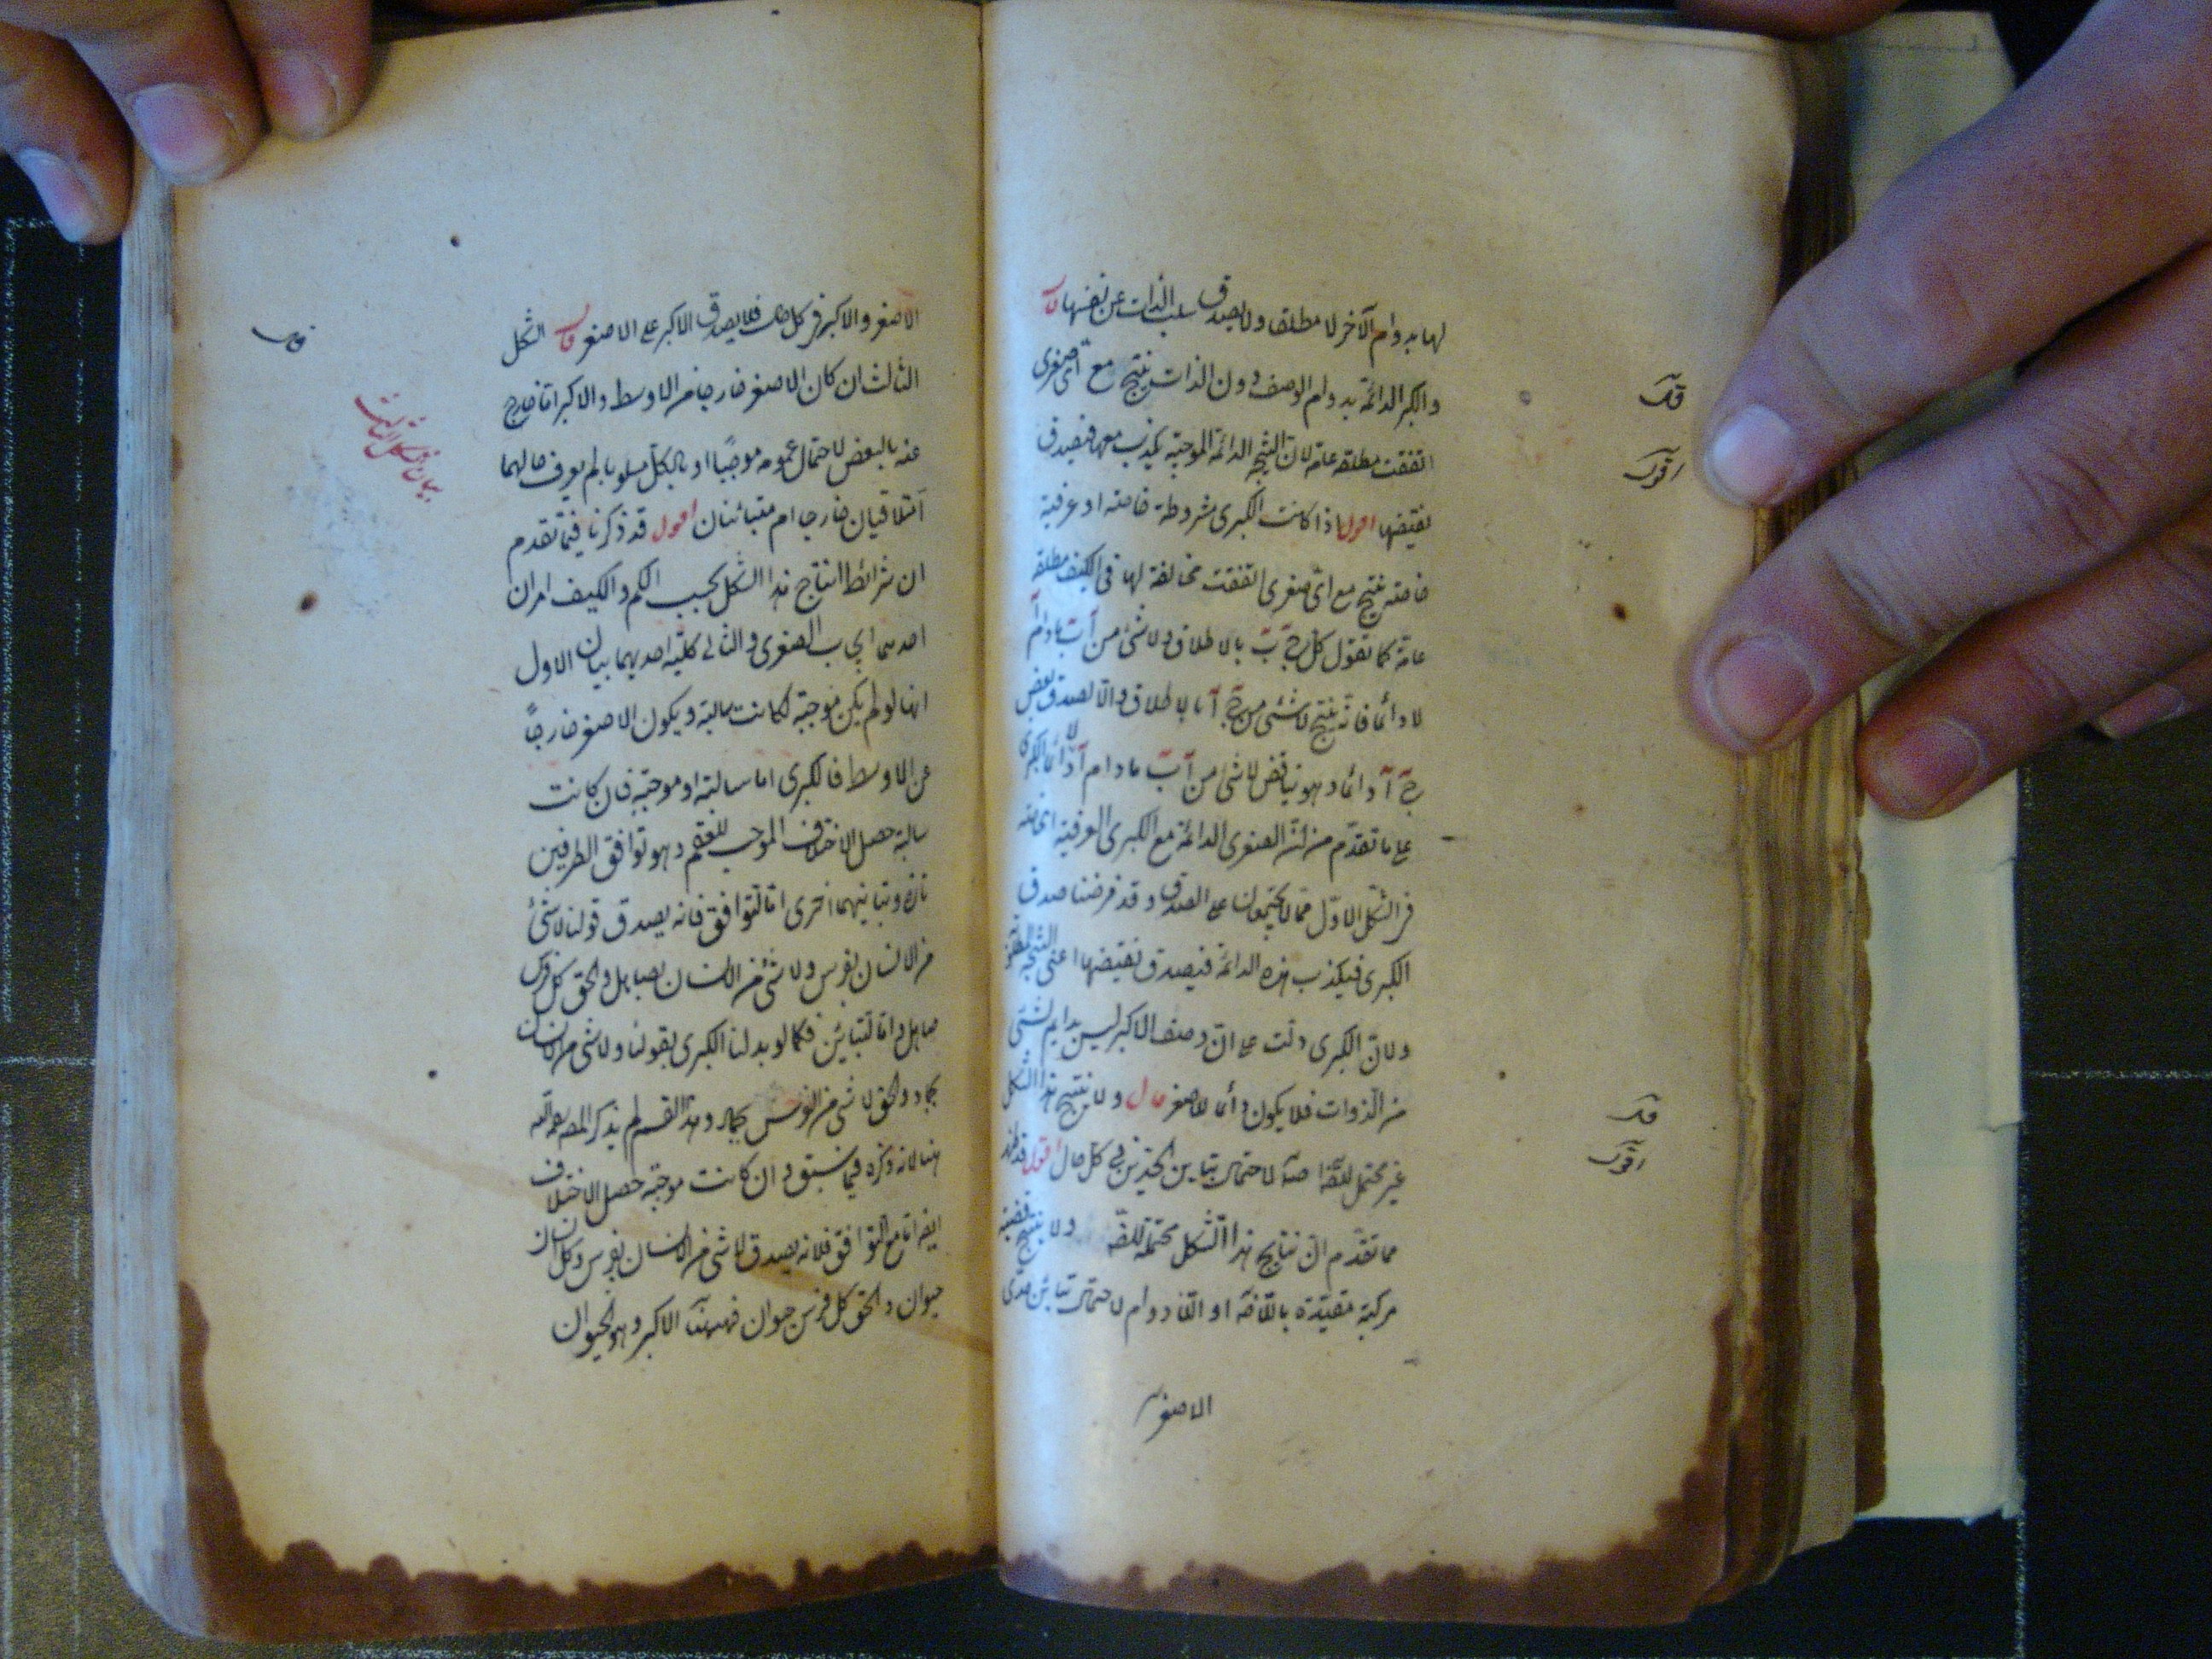 لها بدوام الآخر لا مطلقا ولا يصدق سلب الذات عن نفسها قال
والكبرى الدائمة بدوام الوصف دون الذات ينتج مع اى صغرى
اتفقت مطلقة عامة لان النتيجة الدائمة الموجبة يكذب معها فيصدق
نقيضها اقول اذا كانت الكبرى مشروطة خاصة او عرفية
خاصة ينتج مع اىّ صغرى اتفقت مخالفة لها فى الكيف مطلقة
عامة كما تقول كل ج ب بالاطلاق ولا شئ من آ ب مادام آ
لا دائما فانه ينتج لا شئ من ج آ بالاطلاق والا لصدق بعض
ج آ دائما وهو يناقض لا شئ من آ ب مادام آ لا دائما الكبرى
على ما تقدم من ان الصغرى الدائمة مع الكبرى العرفية الخاصة
فى الشكل الاول مما لا يجتمعان على الصدق وقد فرضنا صدق
الكبرى فيكذب هذه الدائمة فيصدق نقيضها اعنى النتيجة المطلقة
ولان الكبرى دلت على ان وصف الاكبر ليس بدايم لشئ
من الذوات فلا يكون دائما للاصغر قال ولا ينتج هذا الشكل
غير محتمل للضرورة لاحتمال تباين الحدين فى كل حال اقول قد ظهر
مما تقدم ان نتايج هذا الشكل محتملة للضرورة ولا ينتج قضية
مركبة مقيدة باللاضرورة او اللادوام لاحتمال تباين حدى
الاصغر
قال
اقول
قال
اقول
الاصغر والاكبر فى كل حال فلا يصدق الاكبر على الاصغر قال الشكل
الثالث ان كان الاصغر خارجا من الاوسط والاكبر اما خارج
عنه بالبعض لاحتمال عمومه موجبا او بالكل مسلوبا لم يعرف حالهما
أمتلاقيان خارجا ام متبائنان اقول قد ذكرنا فيما تقدم
ان شرائط انتاج هذا الشكل بحسب الكم والكيف امران
احدهما ايجاب الصغرى والثانى كلية احديهما بيان الاول
انها لو لم يكن موجبة لكانت سالبة ويكون الاصغر خارجاً
عن الاوسط فالكبرى اما سالبة او موجبة فان كانت
سالبة حصل الاختلاف الموجب للعقم وهو توافق الطرفين
تارة وتباينهما اخرى اما التوافق فانه يصدق قولنا لا شئ
من الانسان بفرس ولا شئ من الانسان بصاهل والحق كل فرس
صاهل واما التبائن فكما لو بدلنا الكبرى بقولنا ولا شئ من الانسان
بجماد والحق لا شئ من الفرس بجماد وهذا القسم لم يذكر المصنف رحمه الله
هنا لانه ذكره فيما سبق وان كانت موجبة حصل الاختلاف
ايضا اما مع التوافق فلانه يصدق لا شئ من الانسان بفرس وكل انسان
حيوان والحق كل فرس حيوان فههنا الاكبر وهو الحيوان
قال
بيان الشكل الثالث